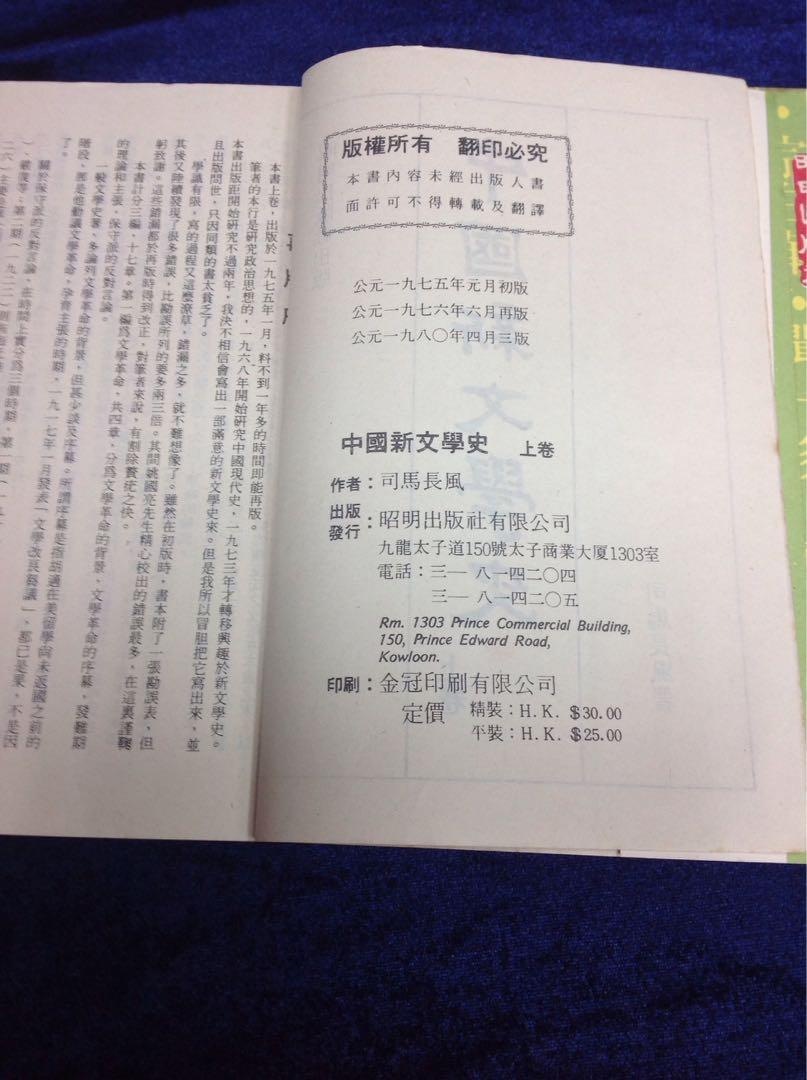 版權所有 翻印必究
本書內容未經出版人書
面許可不得轉載及翻譯
公元一九七五年元月初版
公元一九七六年六月再版
公元一九八〇年四月三版
中國新文學史 上卷
作者：司馬長風
出版
發行：昭明出版社有限公司
九龍太子道150號太子商業大厦1303室
電話：三—八一四二〇四
三—八一四二〇五
Rm. 1303 Prince Commercial Building,
150, Prince Edward Road,
Kowloon.
印刷：金冠印刷有限公司
定價 精裝：H.K. $30.00
平裝：H.K. $25.00
本書上卷，出版於一九七五年一月，料不到一年多的時間即能再版。
筆者的本行是研究政治思想的，一九六八年開始研究中國現代史，一九七三年才轉移興趣於新文學史。
本書出版距開始研究不過兩年，我決不相信會寫出一部滿意的新文學史來。但是我所以冒胆把它寫出來，並
且出版問世，只因同類的書太貧乏了。
學識有限，寫的過程又這麼潦草，錯漏之多，就不難想像了。雖然在初版時，書本附了一張勘誤表，但
其後又陸續發現了很多錯誤，比勘誤所列的要多兩三倍。其間姚國亮先生精心校出的錯誤最多，在這裏謹鞠
躬致謝。這些錯漏都於再版時得到改正，對筆者來說，有割除贅疣之快。
本書計分三編，十七章。第一編爲文學革命，共四章，分爲文學革命的背景、文學革命的序幕，發難期
的理論和主張，保守派的反對言論。
一般文學史著，多論列文學革命的背景，但甚少談及序幕。所謂序幕是指胡適在美留學尚未返國之前的
階段，那是他動議文學革命，孕育主張的時期，一九一七年一月發表「文學改良芻議」，那已是果，不是因
了。
關於保守派的反對言論，在時間上實分爲三個時期，第一期